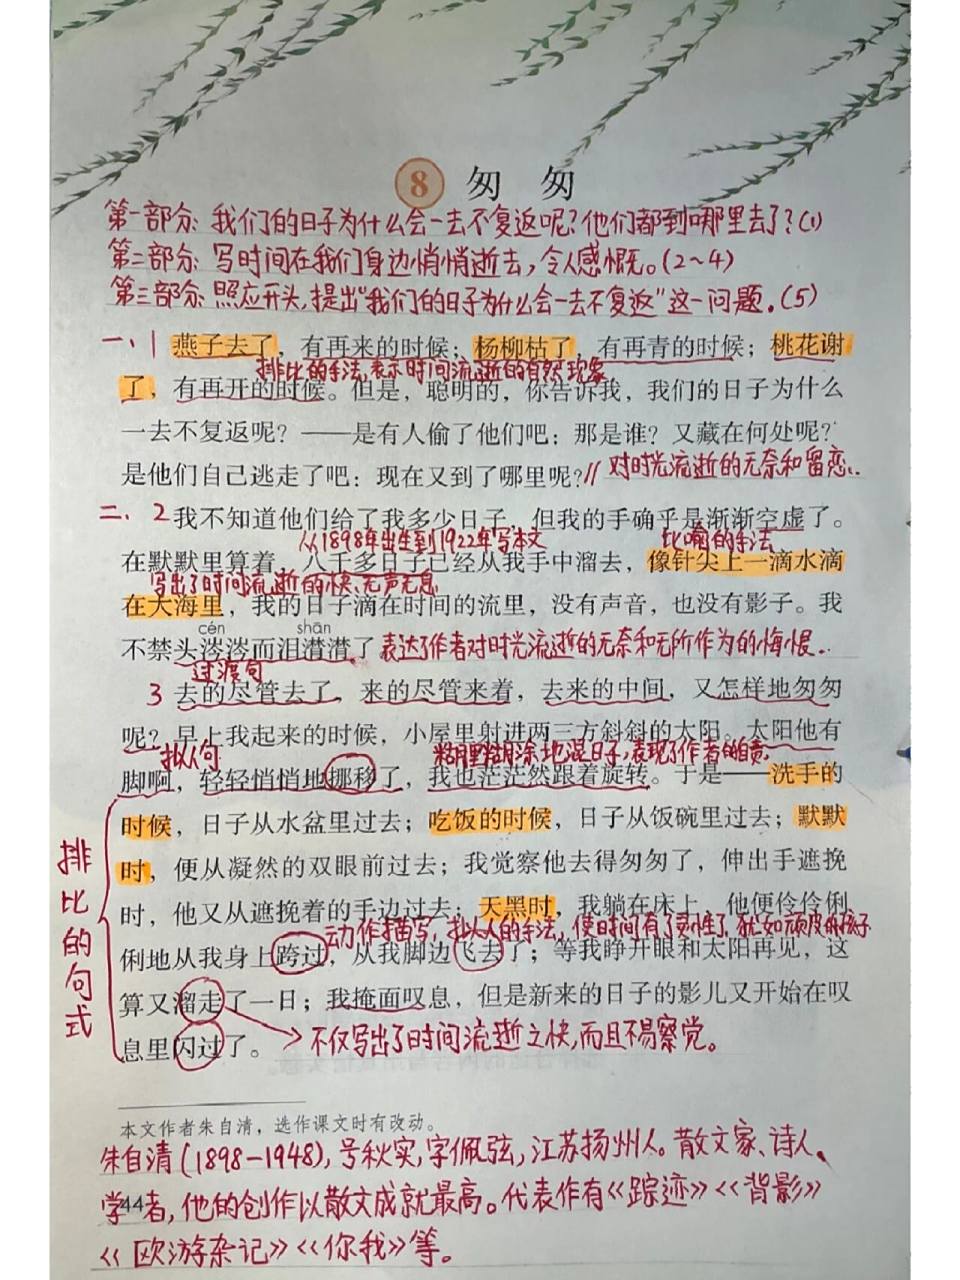 8 匆匆
第一部分：我们的日子为什么会一去不复返呢？他们都到哪里去了？(1)
第二部分：写时间在我们身边悄悄逝去，令人感慨。(2~4)
第三部分：照应开头，提出“我们的日子为什么会一去不复返”这一问题。(5)
一、1 燕子去了，有再来的时候；杨柳枯了，有再青的时候；桃花谢
排比的手法，表示时间流逝的自然现象
了，有再开的时候。但是，聪明的，你告诉我，我们的日子为什么
一去不复返呢？——是有人偷了他们吧：那是谁？又藏在何处呢？
是他们自己逃走了吧：现在又到了哪里呢？// 对时光流逝的无奈和留恋。
二、2 我不知道他们给了我多少日子，但我的手确乎是渐渐空虚了。
从1898年出生到1922年写本文 比喻的手法
在默默里算着，八千多日子已经从我手中溜去，像针尖上一滴水滴
写出了时间流逝的快、无声无息
在大海里，我的日子滴在时间的流里，没有声音，也没有影子。我
cén shān
不禁头涔涔而泪潸潸了 表达了作者对时光流逝的无奈和无所作为的悔恨。
过渡句
3 去的尽管去了，来的尽管来着，去来的中间，又怎样地匆匆
呢？早上我起来的时候，小屋里射进两三方斜斜的太阳。太阳他有
拟人句 糊里糊涂地混日子，表现了作者的自责
脚啊，轻轻悄悄地挪移了，我也茫茫然跟着旋转。于是——洗手的
时候，日子从水盆里过去；吃饭的时候，日子从饭碗里过去；默默
时，便从凝然的双眼前过去；我觉察他去得匆匆了，伸出手遮挽
时，他又从遮挽着的手边过去；天黑时，我躺在床上，他便伶伶俐
动作描写，拟人的手法，使时间有了灵性了，犹如顽皮的孩子
俐地从我身上跨过，从我脚边飞去了；等我睁开眼和太阳再见，这
算又溜走了一日；我掩面叹息，但是新来的日子的影儿又开始在叹
息里闪过了。 不仅写出了时间流逝之快，而且不易察觉。
排比的句式
本文作者朱自清，选作课文时有改动。
朱自清(1898-1948)，号秋实，字佩弦，江苏扬州人。散文家、诗人、
学者，他的创作以散文成就最高。代表作有《踪迹》《背影》
44
《欧游杂记》《你我》等。